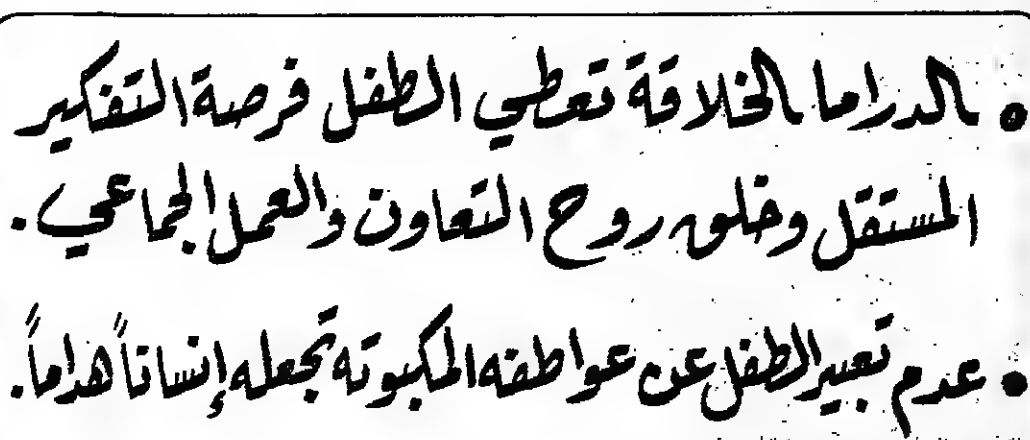 • الدراما الخلاقة تعطي الطفل فرصة التفكير
المستقل وخلق روح التعاون والعمل الجماعي.
• عدم تعبير الطفل عن عواطفه المكبوته تجعله إنساناً هداماً.